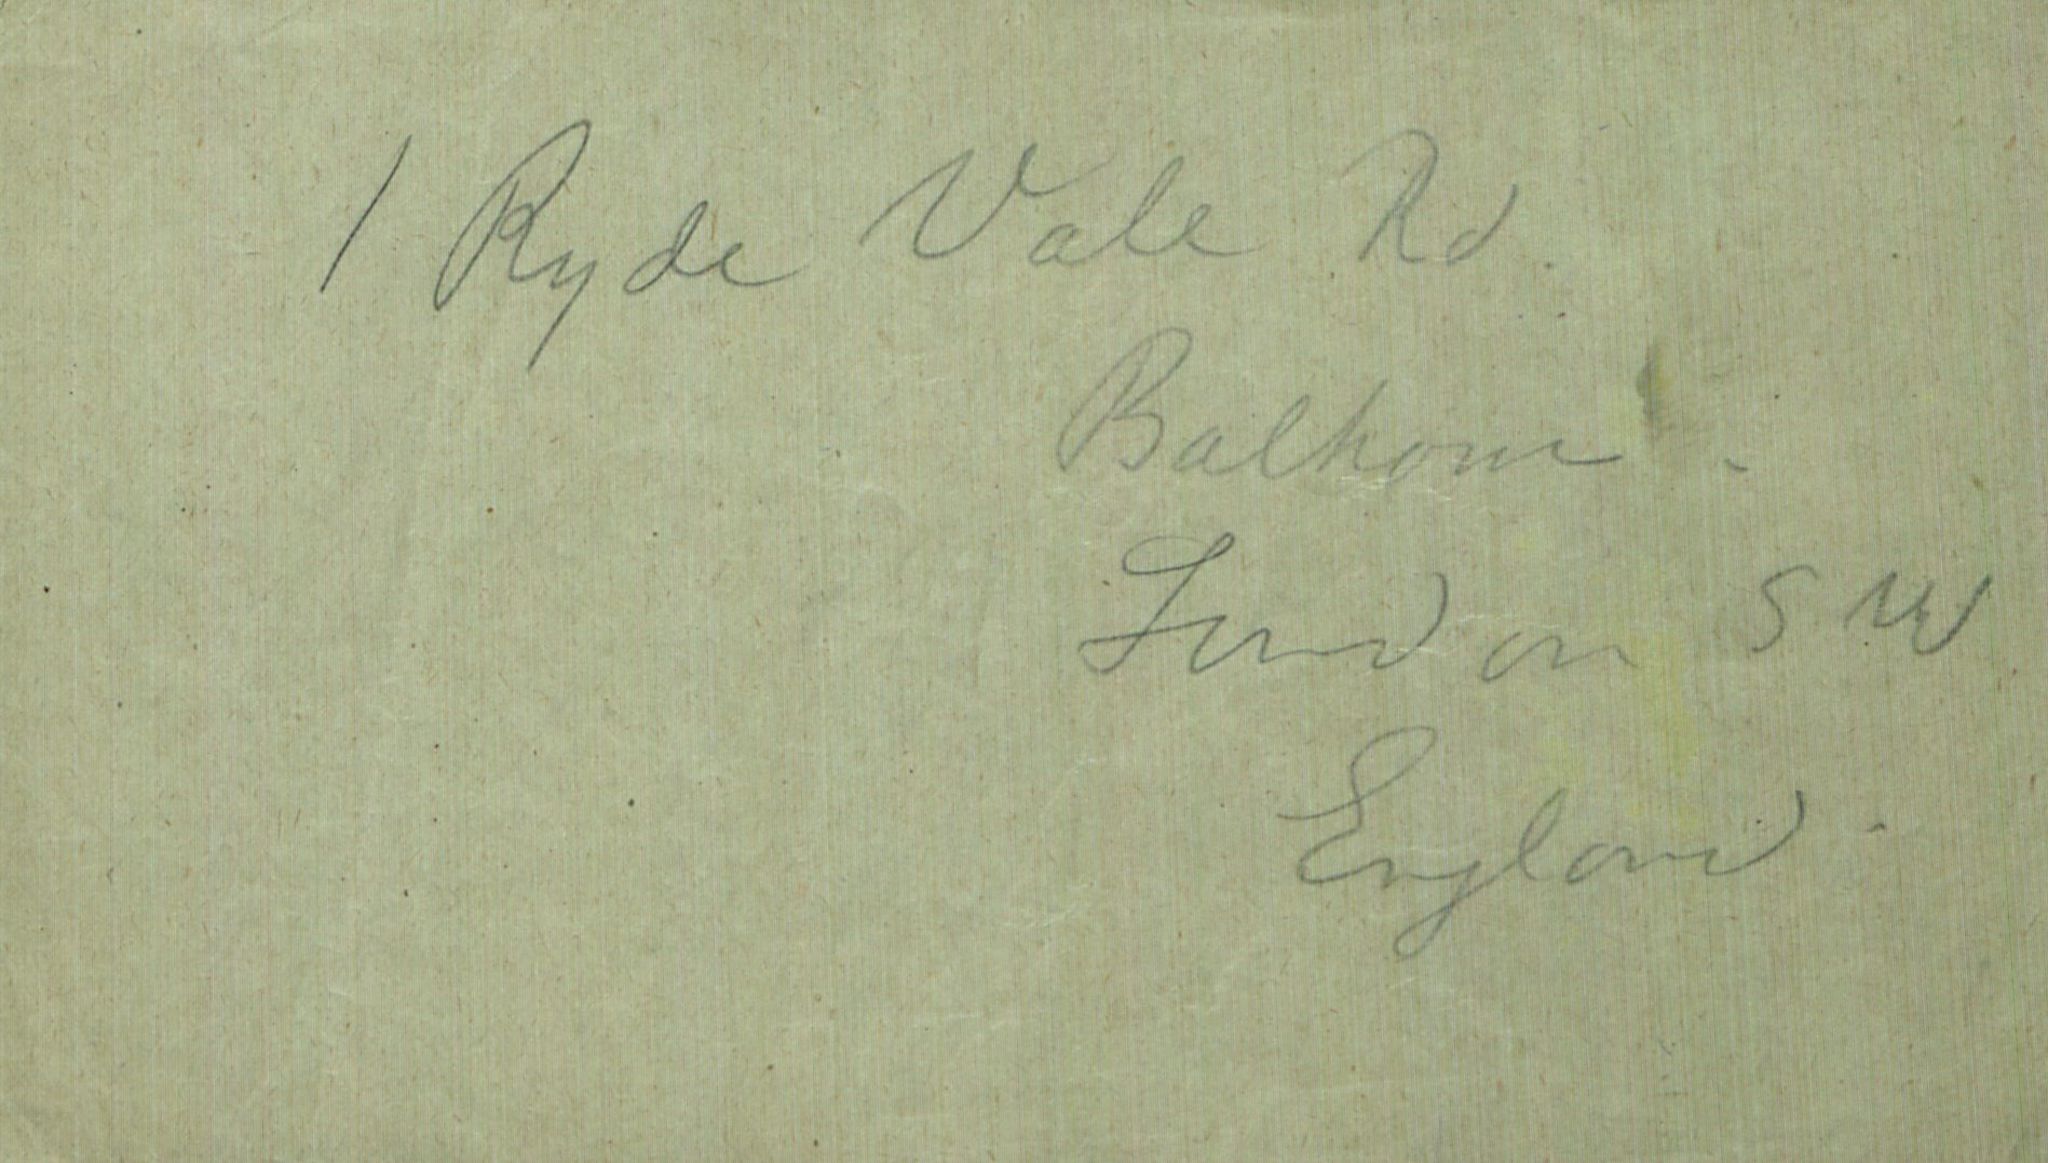 1 Ryde Vale Rd.
Balham.
London SW
England.